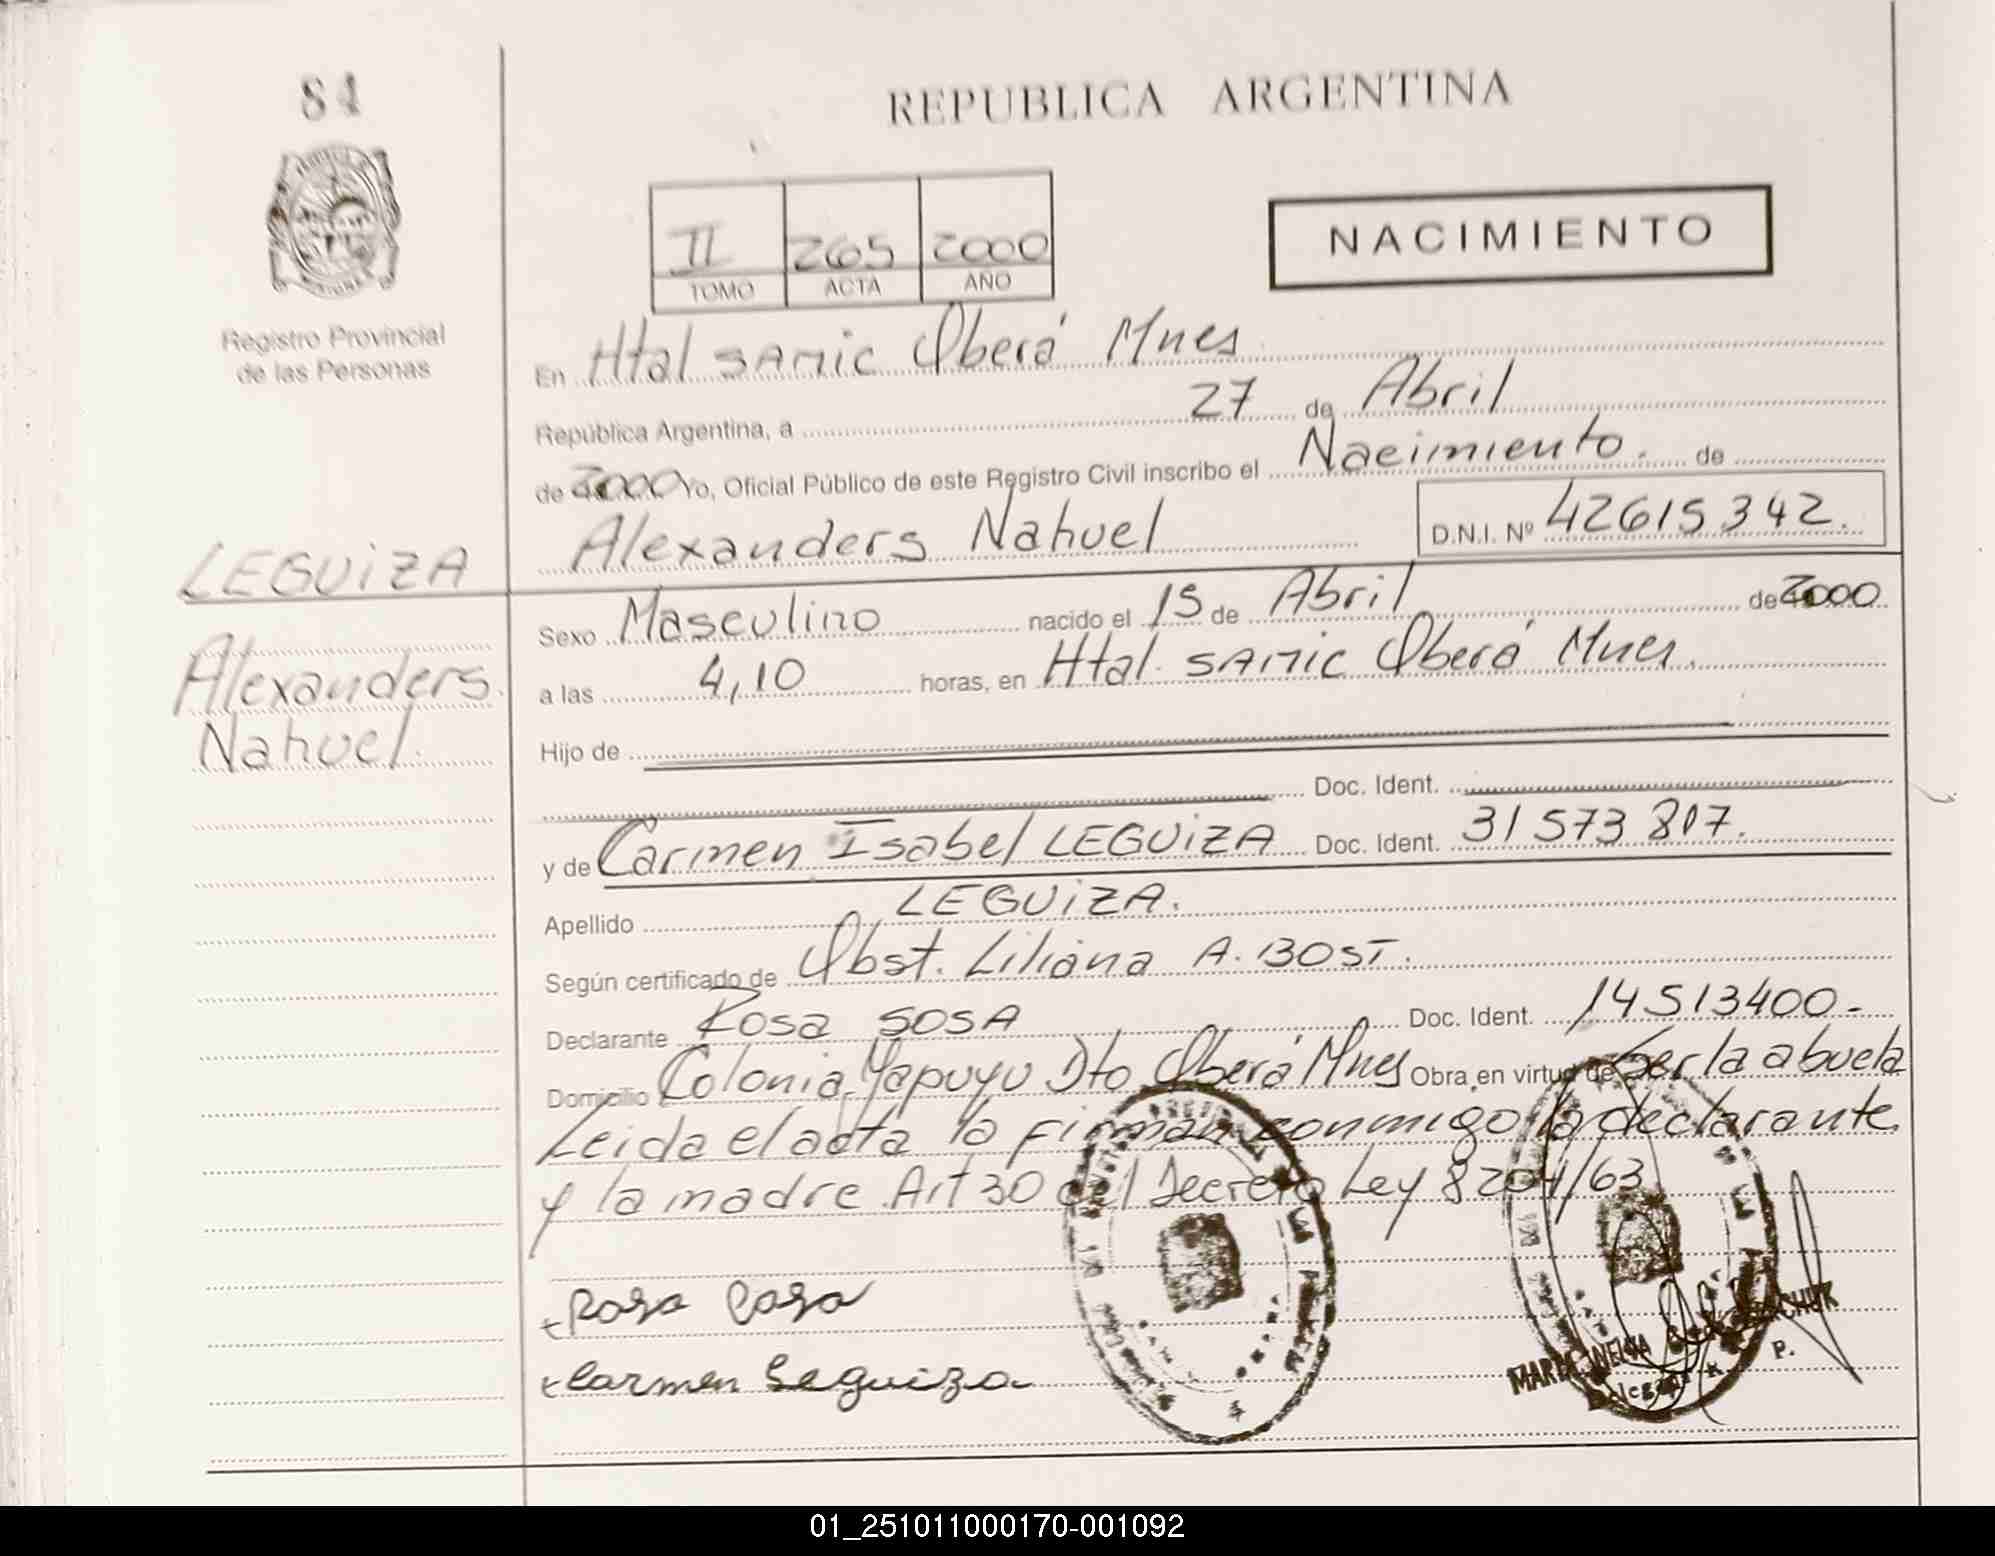 84
REPUBLICA ARGENTINA
II 265 2000
TOMO ACTA AÑO
NACIMIENTO
Registro Provincial
de las Personas
En Htal SAMIC Oberá Mnes
República Argentina, a 27 de Abril
de 2000 Yo, Oficial Público de este Registro Civil inscribo el Nacimiento. de
Alexanders Nahuel D.N.I. Nº 42615342.
LEGUiZA
Alexanders
Nahuel.
Sexo Masculino nacido el 15 de Abril de 2000
a las 4,10 horas, en Htal. SAMIC Oberá Mnes.
Hijo de
Doc. Ident.
y de Carmen Isabel LEGUiZA Doc. Ident. 31573807.
Apellido LEGUiZA.
Según certificado de Obst. Liliana A. BOST.
Declarante Rosa SOSA Doc. Ident. 14513400-
Domicilio Colonia Yapuyu Dto Oberá Mnes Obra en virtud de Ser la abuela
Leida el acta la firman conmigo la declarante
y la madre Art 30 del Decreto Ley 8204/63
Rosa Sosa
Carmen Leguiza
01_251011000170-001092